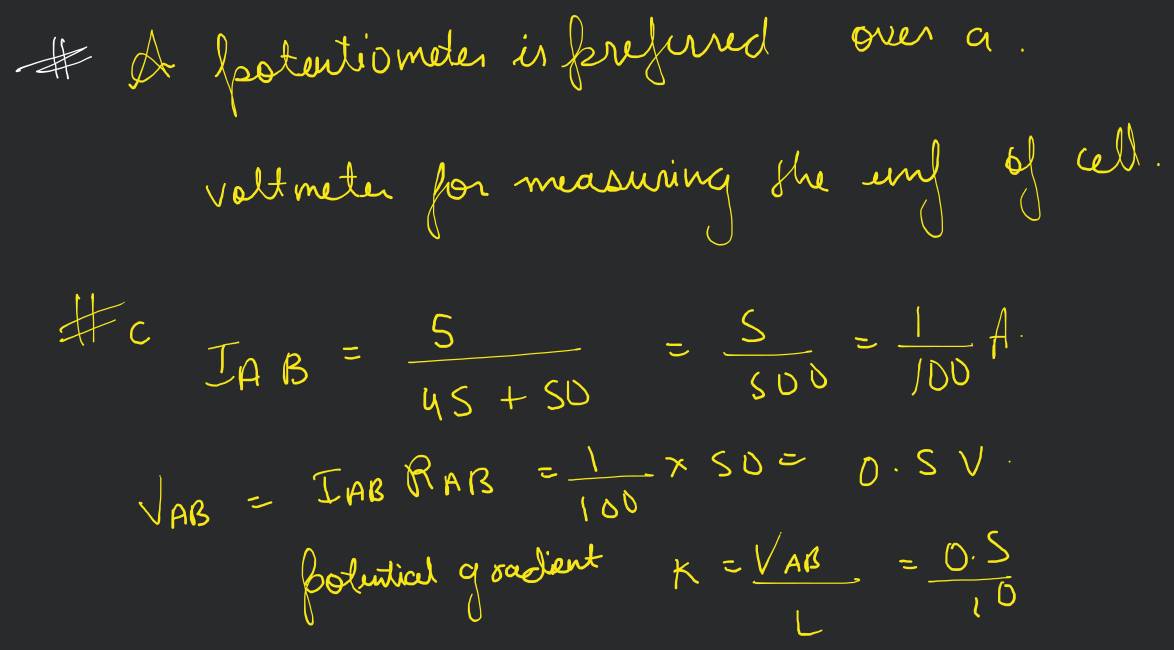 # A potentiometer is preferred over a.
voltmeter for measuring the emf of cell.
# c I_AB = 5 / (45 + 50) = 5 / 500 = 1 / 100 A.
V_AB = I_AB R_AB = 1 / 100 × 50 = 0.5 V.
potential gradient K = V_AB / L = 0.5 / 10